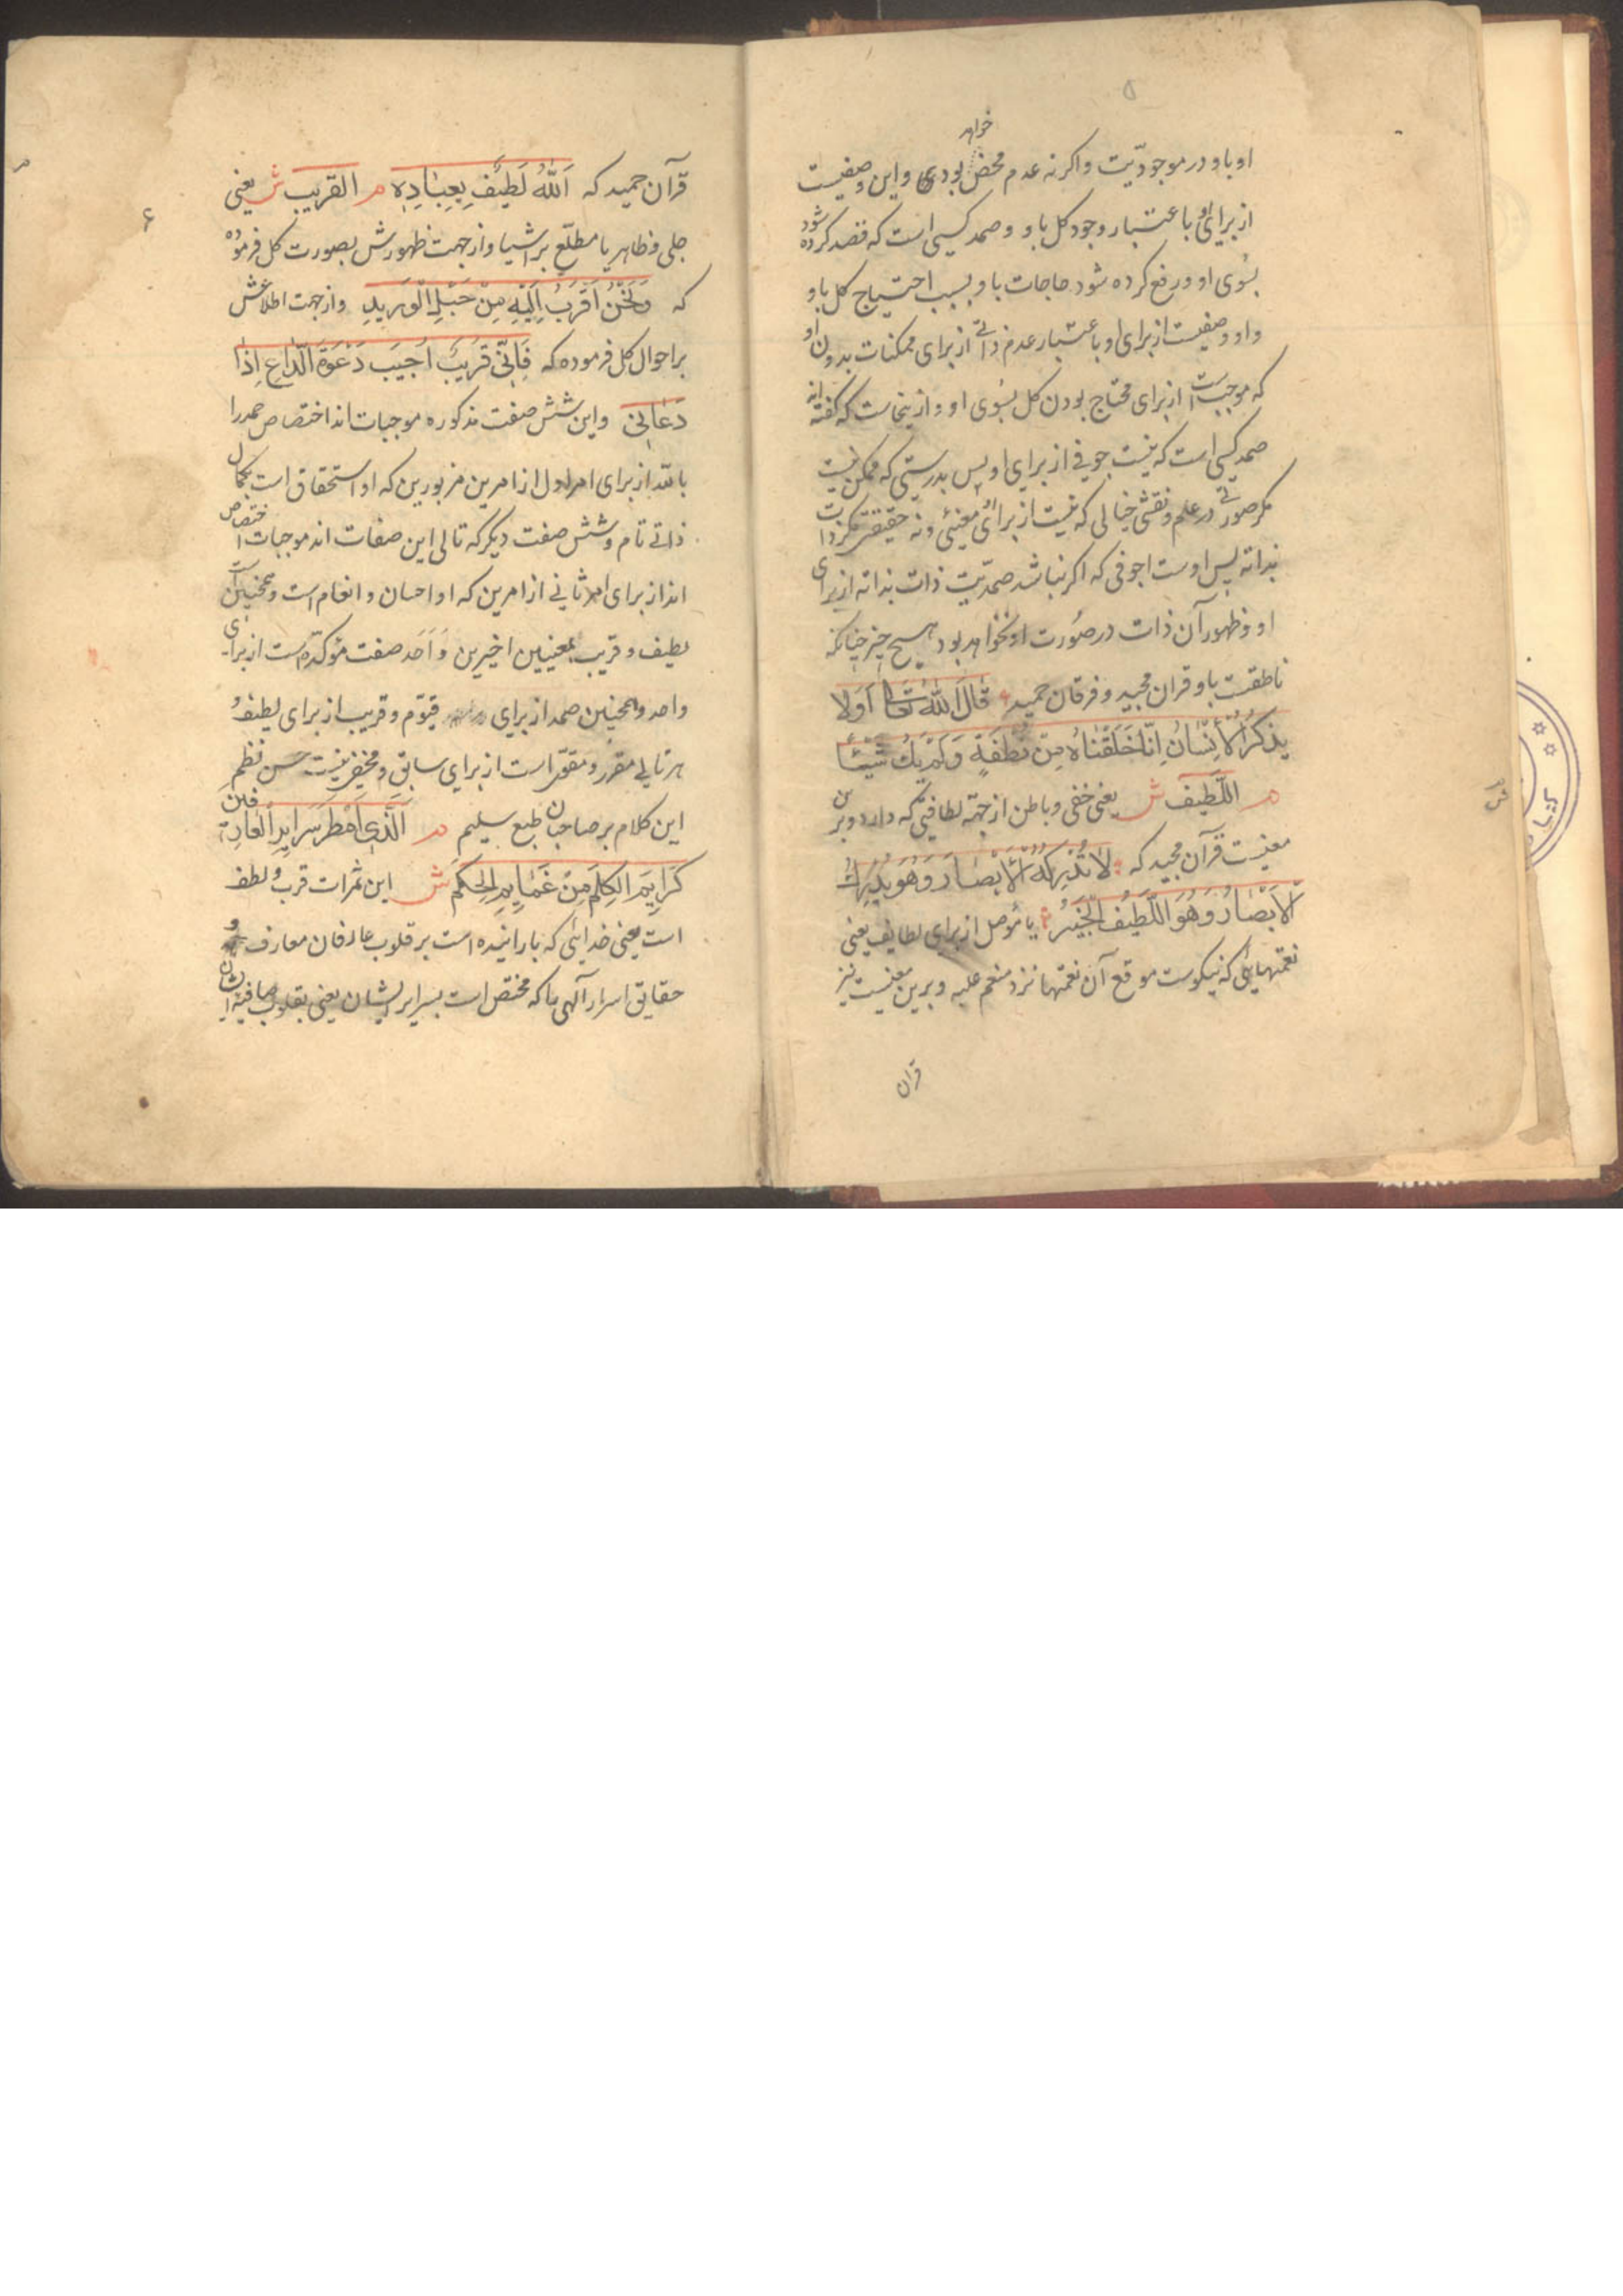 ۵
خواهد
او باو در موجودیّت و اکر نه عدم محض بودی و این وصفیست
از برای او باعتبار وجود کل باو و صمد کسی است که قصد کرده شود
بسُوی او و رفع کرده شود حاجات باو بسبب احتیاج کل باو
و او وصفیست از برای او باعتبار عدم ذاتی از برای ممکنات بدون او
که موجبست از برای محتاج بودن کل بسُوی او و ازینجاست که کفته اند
صمد کسی است که نیست جوفی از برای او پس بدرستی که ممکن نیست
مکر صورتی در علم و نقشی خیالی که نیست از برای او معنیئ و نه حقیقتی مکر ذات
بذاته پس اوست اجوفی که اکر نباشد صمدیّت ذات بذاته از برای
او و ظهور آن ذات در صُورت او نخواهد بود هیچ چیز چنانکه
ناطقست باو قران مجید و فرقان حمید قَالَ اللّٰهُ تَعَالٰی اَوَلا
یَذکُرُ الْاِنْسَانُ اِنّا خَلَقْنَاهُ مِنْ نُطْفَةٍ وَلَمْ یَكُ شَیْئًا
م اللَّطِیف ش یعنی خفی و باطن از جهة لطافتی که دارد و برین
معنیست قرآن مجید که لَا تُدْرِکُهُ الْاَبْصَارُ وَهُوَ یُدْرِكُ
الْاَبْصَارُ وَهُوَ اللَّطِیفُ الْخَبِیرُ یا موصل از برای لطایف یعنی
نعمتهایی که نیکوست موقع آن نعمتها نزد منعم علیه و برین معنیست نیز
قرآن
۶
قرآن حمید که اَللّٰهُ لَطِیْفٌ بِعِبَادِهٖ م القریب ش یعنی
جلی و ظاهر یا مطلع بر اشیا و از جهت ظهورش بصورت کل فرموده
که وَنَحْنُ اَقْرَبُ اِلَیْهِ مِنْ حَبْلِ الْوَرِیدِ و از جهت اطلاعش
بر احوال کل فرموده که فَاِنِّی قَرِیبٌ اُجِیبُ دَعْوَةَ الدَّاعِ اِذَا
دَعَانِی و این شش صفت مذکوره موجبات اند اختصاص حمد را
باللّه از برای امر اول از امرین مزبورین که او استحقاق است بکمال
ذاتی تام و شش صفت دیکر که تالی این صفات اند موجبات اختصاص
اند از برای امر ثانی از امرین که او احسان و انعام است و همچنین است
لطیف و قریب بمعنیین اخیرین وَاَحَد صفت مؤکّده است از برای
واحد و همچنین صمد از برای قیّوم و قریب از برای لطیف و
هر تالی مقرر و مقوّی است از برای سابق و مخفی نیست حسن نظم
این کلام بر صاحبان طبع سلیم م اَلَّذِی اَمْطَرَ سَرَایِرَ الْعَارِفین
کَرَایِمَ الکِلَمِ مِنْ غَمَایِمِ الحِکَم ش این ثمرات قرب و لطف
است یعنی خدایی که بارانیده است بر قلوب عارفان معارف و
حقایق اسرار آلهی را که مختص است بسرایر ایشان یعنی بقلوب صافیه ایشان